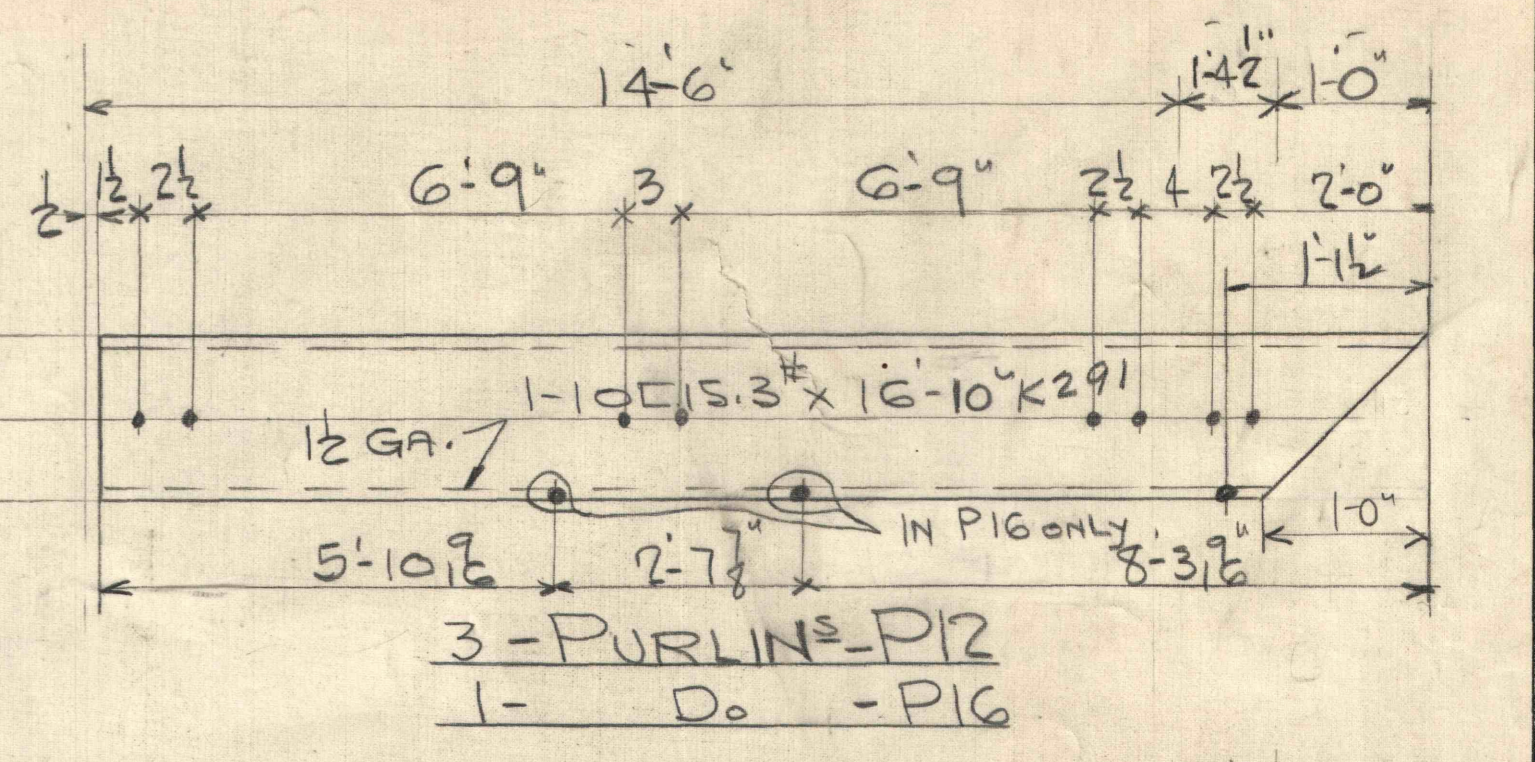 14'-6" 1'-4½" 1'-0"
½ 1½ 2½ 6'-9" 3 6'-9" 2½ 4 2½ 2'-0"
1'-1½"
1-10[15.3# x 16'-10" K291
1½ GA.
IN P16 ONLY
1'-0"
5'-10 9/16 2'-7 7/8" 8'-3 9/16"
3 - PURLINS - P12
1- Do - P16